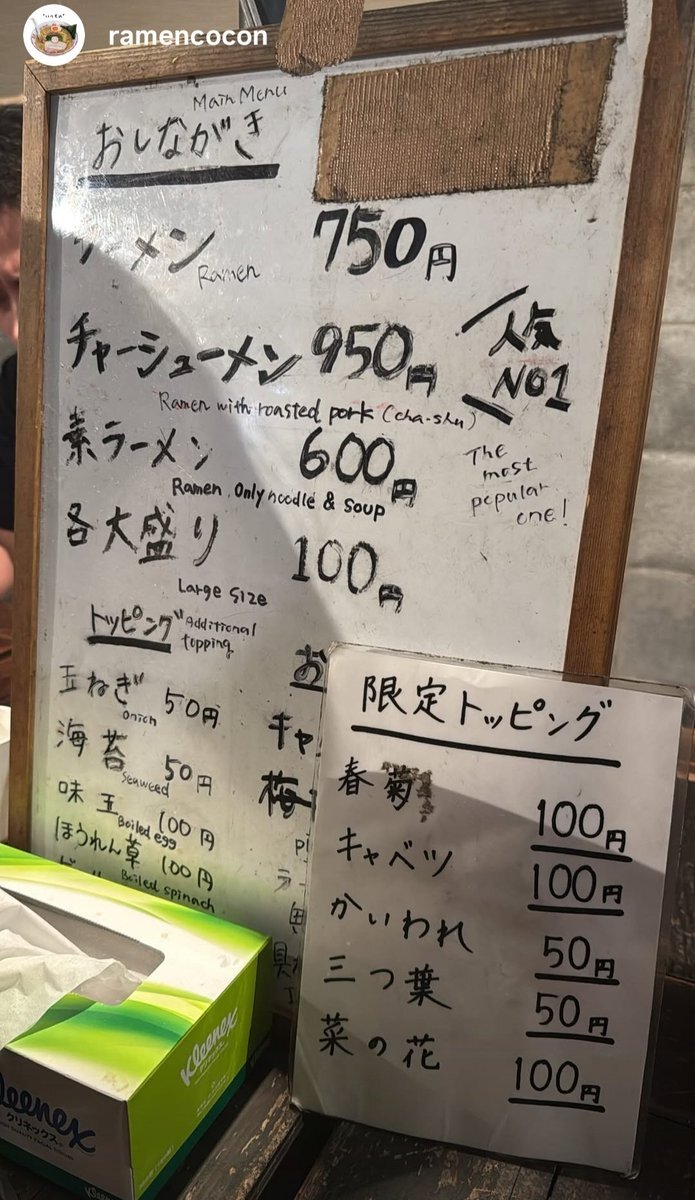 ramencocon
Main Menu
おしながき
ラーメン 750円
Ramen
チャーシューメン 950円
人気
NO1
Ramen with roasted pork (cha-shu)
The
most
popular
one!
素ラーメン 600円
Ramen Only noodle & soup
各大盛り 100円
Large size
トッピング Additional
topping
玉ねぎ 50円
onion
海苔 50円
Seaweed
味玉 100円
Boiled egg
ほうれん草 100円
Boiled spinach
お
キャ
梅
限定トッピング
春菊 100円
キャベツ 100円
かいわれ 50円
三つ葉 50円
菜の花 100円
Kleenex
クリネックス